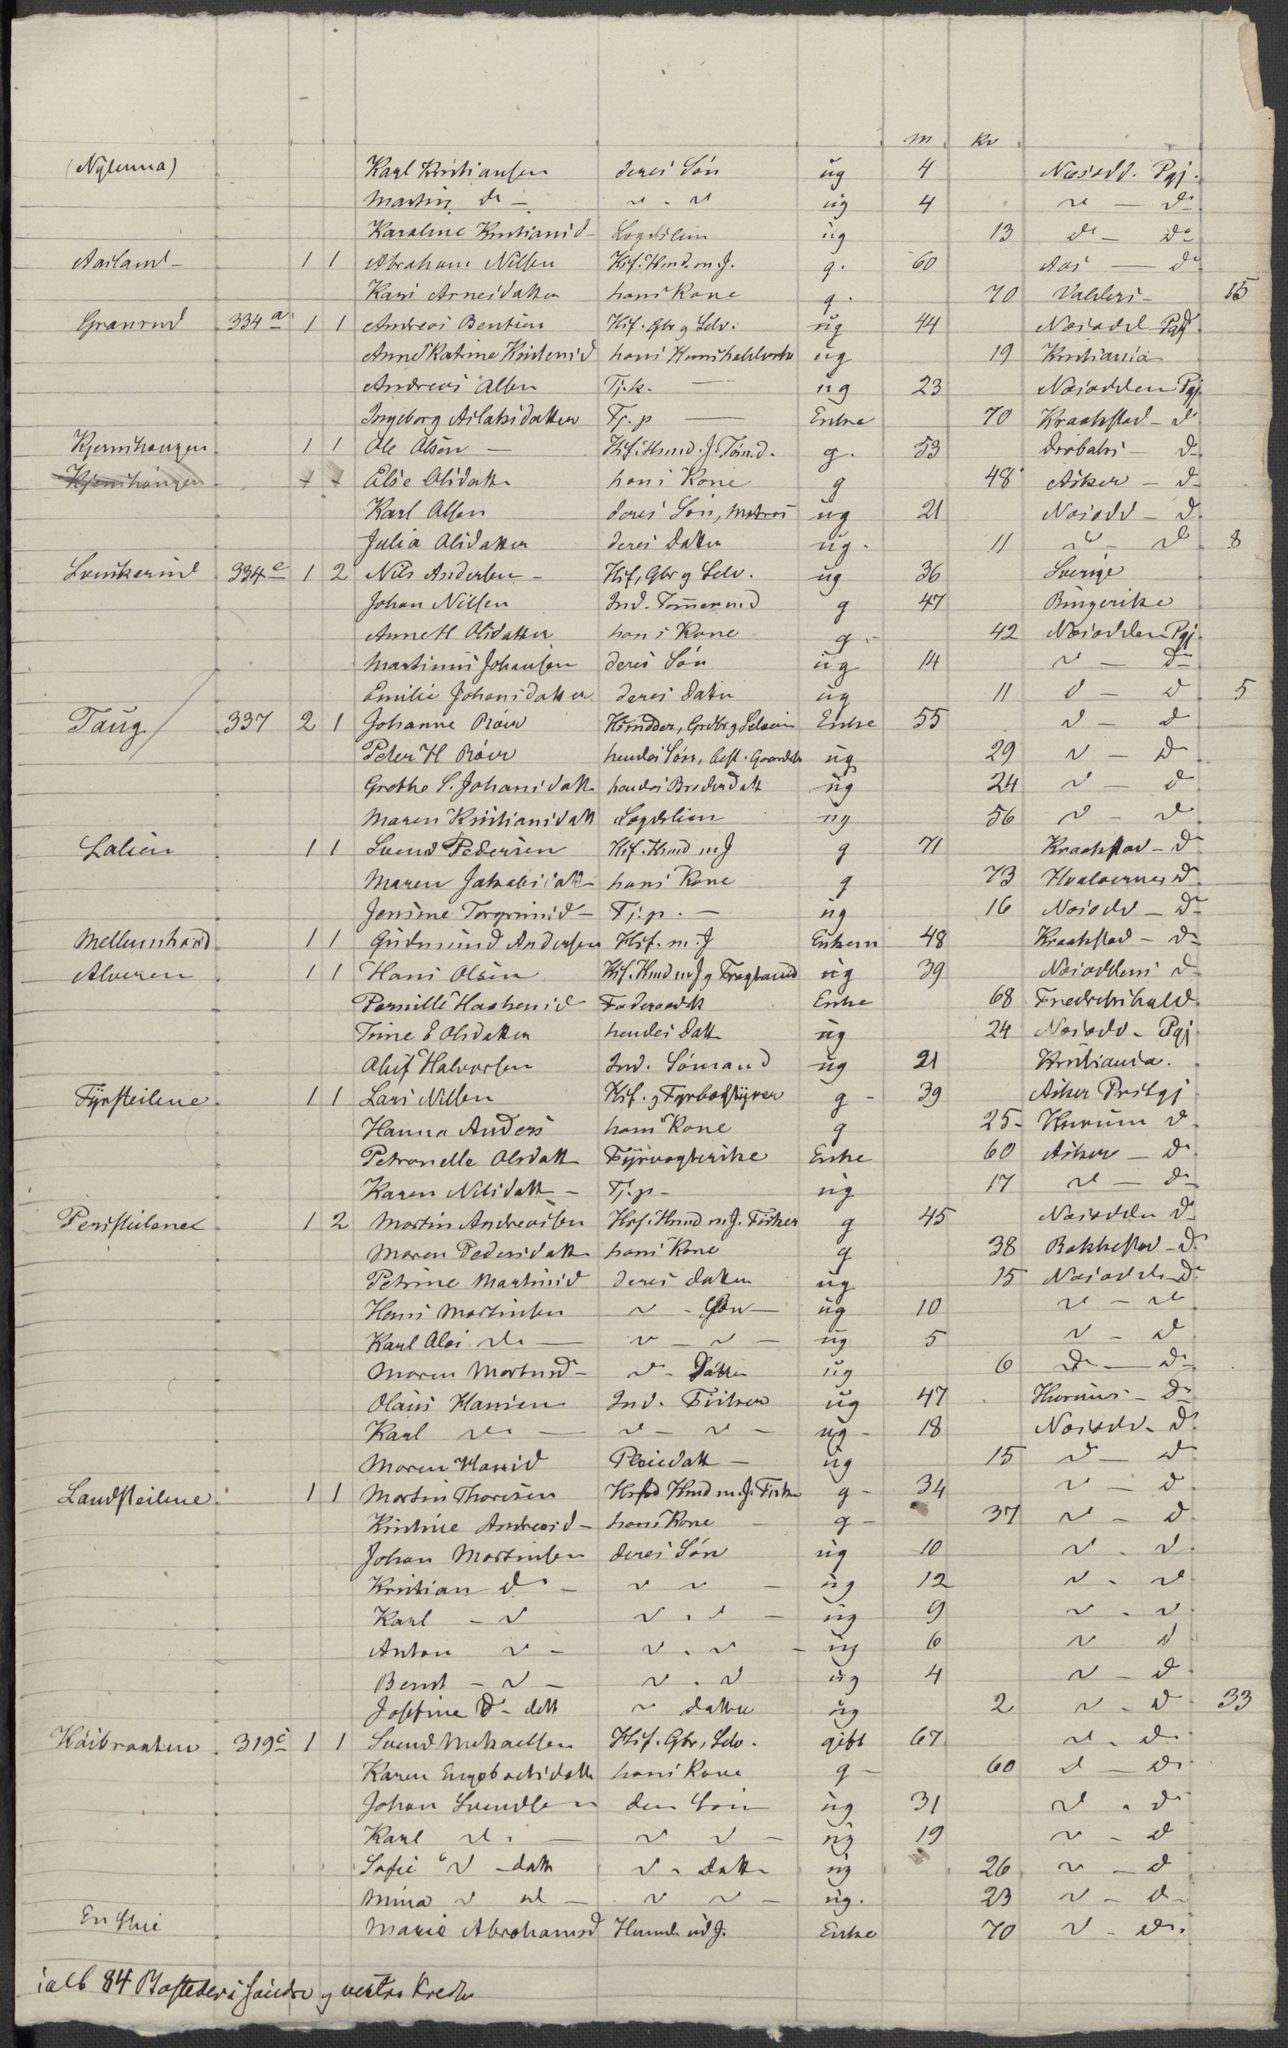 m Kv
(Nylenna) Karl Kristiansen deres Søn ug 4 Næsodd. Pgj.
Martin do — " - " ug 4 " — do
Karoline Kristiansd - Logdslem ug 13 do — do
Aaslant - 1 1 Abraham Nilsen Hsf. Hmd. m. J. g. 60 Aas — do
Kari Arnesdatter hans Kone g. 70 Valders - 15
Granrud 334 a 1 1 Andreas Bentsen Hsf. Gbr og Selv. ug 44 Næsodd - Pgj
Anne Katrine Kristensd hans ug 19 Kristiania
Andreas Olsen Tj.k. — ug 23 Næsodden Pgj.
Ingeborg Aslaksdatter Tj. p — Enke 70 Kraakstad - do
Kjernshaugen 1 1 Ole Olsen — Hsf. Hmd. J. Tømd. g. 53 Drøbaks - do
Kjernshaugen Elise Olsdatt hans Kone g 48 Asker - do
Karl Olsen deres Søn, Matros ug 21 Næsodd - do
Julia Olsdatter deres Datter ug. 11 " - do 8
Svenskerud 334 c 1 2 Nils Andersen - Hsf, Gbr og Selv. ug 36 Sverige
Johan Nilsen Ind. Tømmermd g 47 Ringerike
Anne H Olsdatter hans Kone g - 42 Næsodden Pgj
Martinus Johansen deres Søn ug 14 " — do
Emilie Johansdatter deres Dater ug 11 do — do 5
Taug 337 2 1 Johanne Røer Enke 55 " — do
Peter H Røer hendes Søn, best. Gaarden ug 29 " — do
Grethe S. Johansdatt hendes Broderdatt ug 24 " — do
Maren Kristiansdatt Logdslem ug 56 " - do
Lalien 1 1 Svend Pedersen Hsf. Hmd m J g 71 Kraakstad - do
Maren Jakobsdatt hans Kone g 73 Hvaløernes do
Jensine Torgrimsd - Tj. p. — ug 16 Næsodd — do
Mellumstrand 1 1 Gudmund Andersen Hsf. m. J Enkem 48 Kraakstad - do
Alveren 1 1 Hans Olsen Hsf. Hmd m J og Fragtmand ug 39 Næsoddens do
Pernille Haakensd Foderaadsk Enke 68 Fredrikshald
Trine E Olsdatter hendes Datt ug 24 Næsodd - Pgj
Oluf Halvorsen Ind. Sømand ug 21 Kristiania.
Fyrsteilene 1 1 Lars Nilsen Hsf. og Fyrbestyrer g - 39 Asker Prstgj
Hanna Anders hans Kone g 25 - Hurum do
Petronelle Olsdatt Fyrvogterske Enke 60 Asker — do
Karen Nilsdatt - Tj. p - ug 17 " — do
Persteilene 1 2 Martin Andreasen Hsf. Hmd m. J. Fisker g 45 Næsodden do
Maren Pedersdatt hans Kone g 38 Bakkestad - do
Petrine Martinsd deres Datter ug 15 Næsodden do
Hans Martinsen " - Søn — ug 10 " - "
Karl Alos. do — " - " — ug 5 " - do
Maren Martinsd - " - Datter ug 6 do — do
Olaus Hansen Ind. Fisker ug 47 Hurums - do
Karl do — " - " - ug - 18 Næsodd - do
Maren Hansd Pleiedatt — ug 15 do — do
Landsteilene 1 1 Martin Thoresen Hsfd Hmd m. J. Fisker g - 34 " — do
Kristine Andreasd - hans Kone g - 37 " - do
Johan Martinsen deres Søn ug 10 " - "
Kristian do — " " - ug 12 " - do
Karl - " " - " - ug 9 " - "
Anton " - " - " - ug 6 " do
Bernt - " - " - " ug 4 " - do
Josefine do - datt " datter ug 2 " - do 33
Høibraaten 319 c 1 1 Svend Mikaelsen Hsf. Gbr, Selv. gift 67 " - do
Karen Engebretsdatt hans Kone g - 60 do — do
Johan Svendsen deres Søn ug 31 " - do
Karl do — " " - ug 19 " - do
Sofie " - datt " - Datt ug 26 " — do
Mina " do — " " - ug. 23 " - do
Marie Abrahamsd Enke 70 " - do
ialt 84 Bosteder i søndre og vestre Kreds